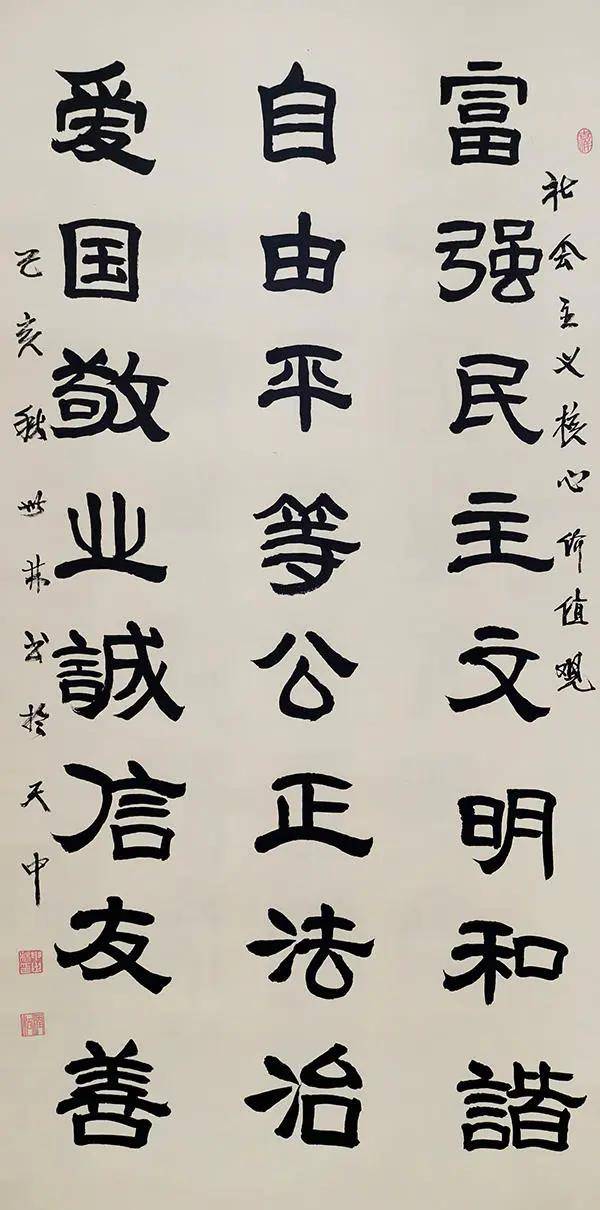 社会主义核心价值观
富强民主文明和諧
自由平等公正法治
爱国敬业誠信友善
己亥秋世林书於天中